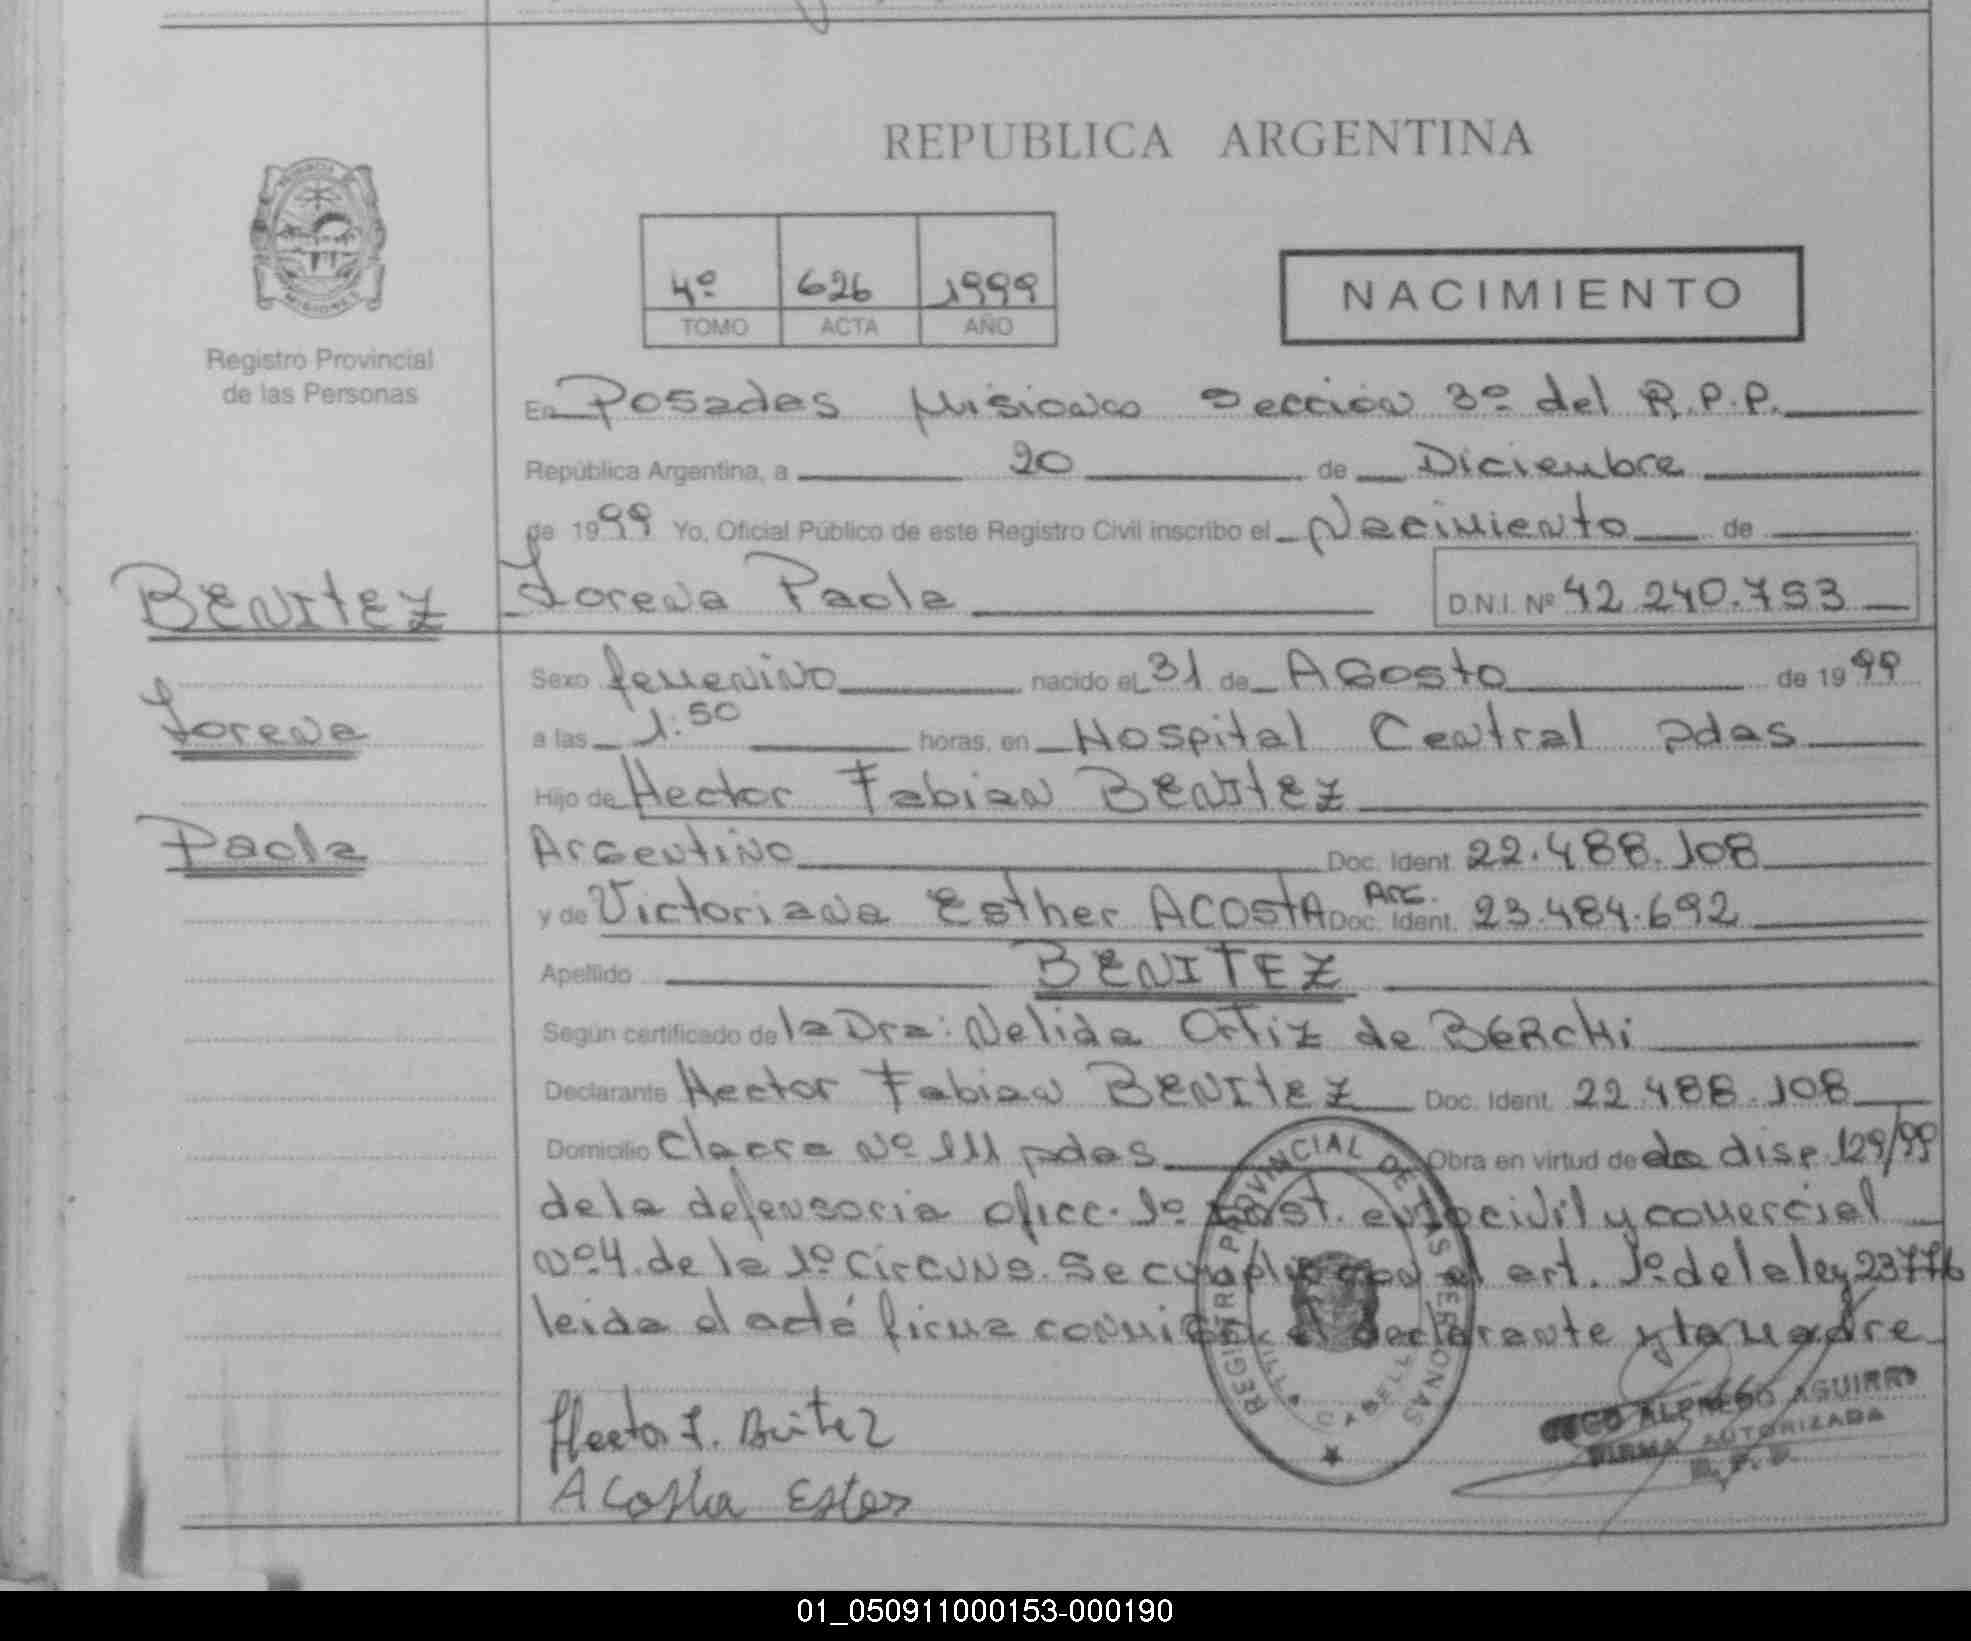 REPUBLICA ARGENTINA
MISIONES
Registro Provincial
de las Personas
4º 626 1999
TOMO ACTA AÑO
NACIMIENTO
En Posadas Misiones Sección 3º del R.P.P.
República Argentina, a 20 de Diciembre
de 1999 Yo, Oficial Público de este Registro Civil inscribo el Nacimiento de
BENITEZ Lorena Paola D.N.I. Nº 42.240.753
Sexo femenino nacido el 31 de Agosto de 1999
Lorena
a las 1:50 horas, en Hospital Central pdas
Hijo de Hector Fabian BENITEZ
Paola
Argentino Doc. Ident. 22.488.108
y de Victoriana Esther ACOSTA Arg. Doc. Ident. 23.484.692
Apellido BENITEZ
Según certificado de la Dra: Nelida Ortiz de BERCHI
Declarante Hector Fabian BENITEZ Doc. Ident. 22.488.108
Domicilio Chacra Nº 111 pdas Obra en virtud de la disp. 129/99
de la defensoria ofic. 1º inst. en lo civil y comercial
Nº 4. de la 1º Circuns. Se cumplio con el art. 1º de la ley 23776
leida el acta firma conmigo el declarante y la madre
REGISTRO PROVINCIAL DE LAS PERSONAS
VILLA CABELLO
Hector F. Benitez
Acosta Ester
ALFREDO AGUIRRE
FIRMA AUTORIZADA
R.P.P.
01_050911000153-000190